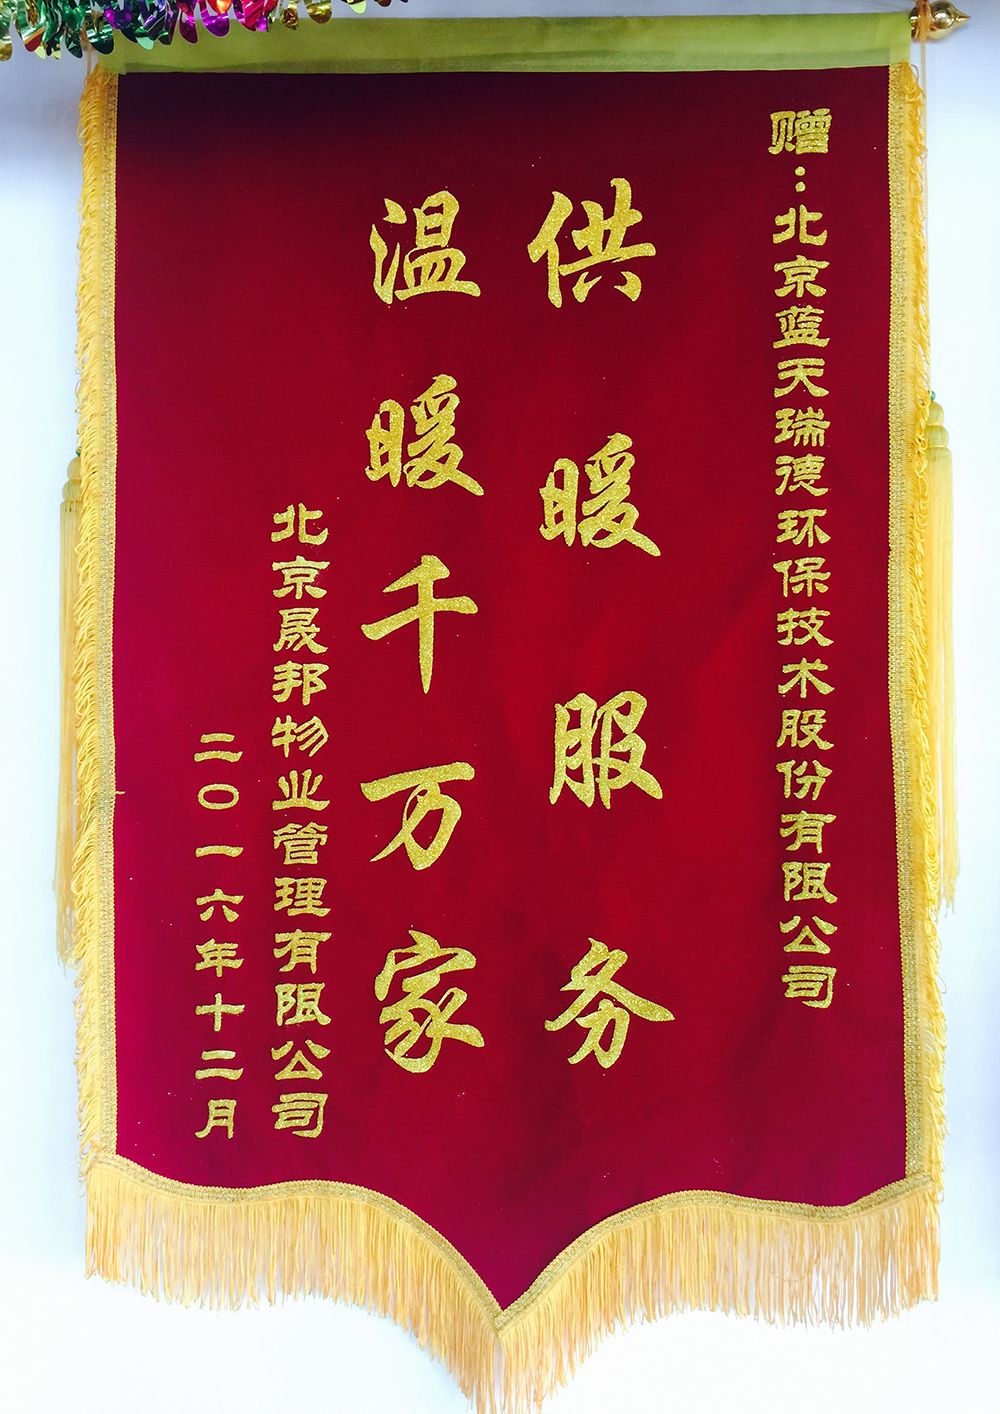 赠:北京蓝天瑞德环保技术股份有限公司
供暖服务
温暖千万家
北京晟邦物业管理有限公司
二〇一六年十二月